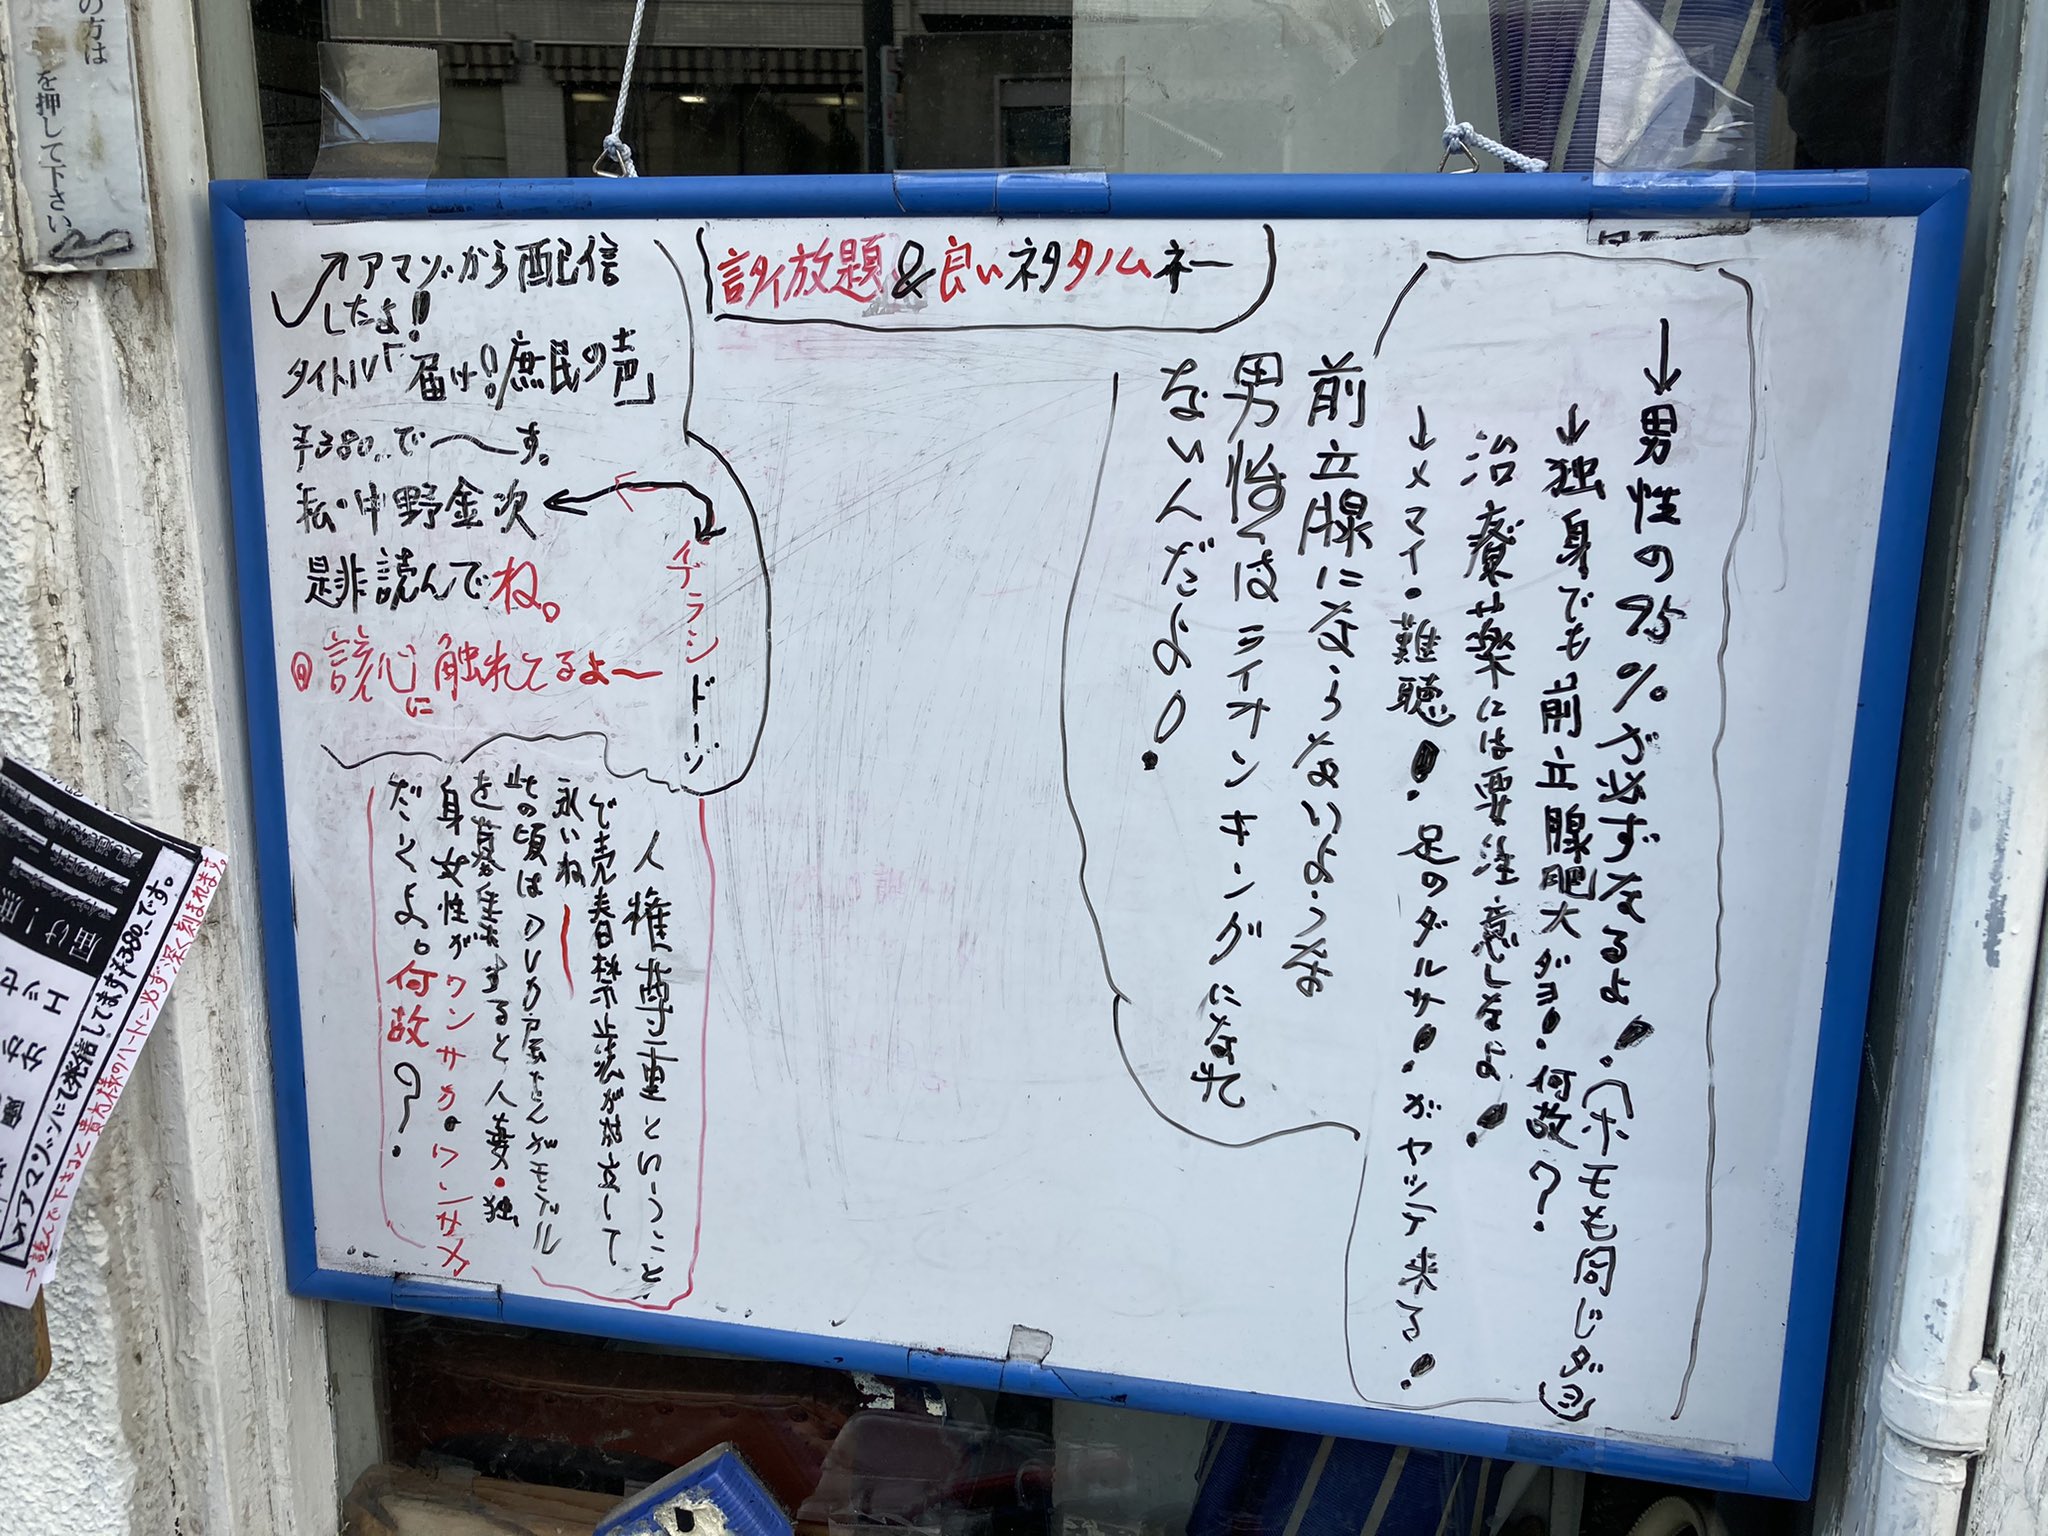 の方は
を押して下さい
詑放題&良いネタタノムネー
↓男性の95%が必ずなるよ!(ホモも同じダヨ)
↓独身でも前立腺肥大ダヨ!何故?
治療薬には要注意しなよ!
↓メマイ・難聴!足のダルサ!がヤッテ来る!
前立腺にならないような
男性はライオンキングになれ
ないんだよ!
↗アマゾから配信
したよ!!
タイトル「届け!庶民の声」
¥380.で〜す。
私・中野金次
是非読んでね。
読心に触れてるよ〜
イデラシドーゾ
人権尊重ということ
で売春禁止法が成立して
永いね
此の頃はカレカノ屋さんがモデル
を募集すると人妻・独
身女性がワンサカ・ワンサカ
だってよ。何故?
届け!庶
↳アマゾンにて発信してます¥380.-です。
→読んで下さると貴方様のハートに必ず深く刻まれます。